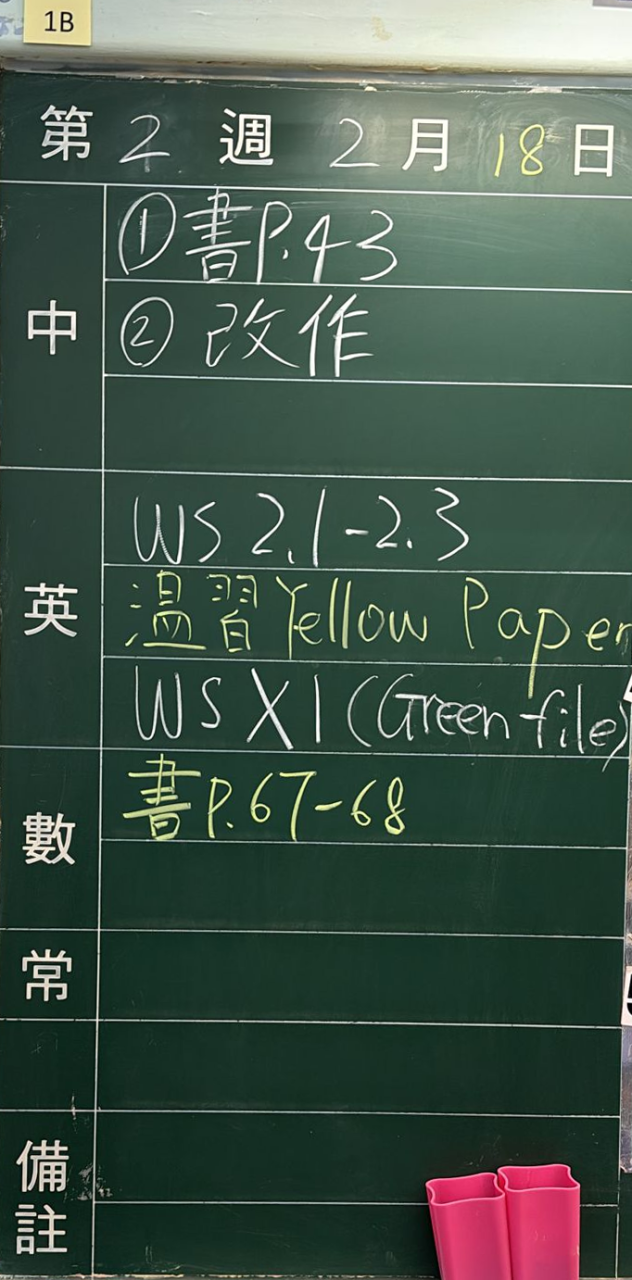 1B
第2週2月18日
中
①書P.43
②改作
英
WS 2.1-2.3
溫習Yellow Paper
WS X1 (Green file)
數
書P.67-68
常
備註